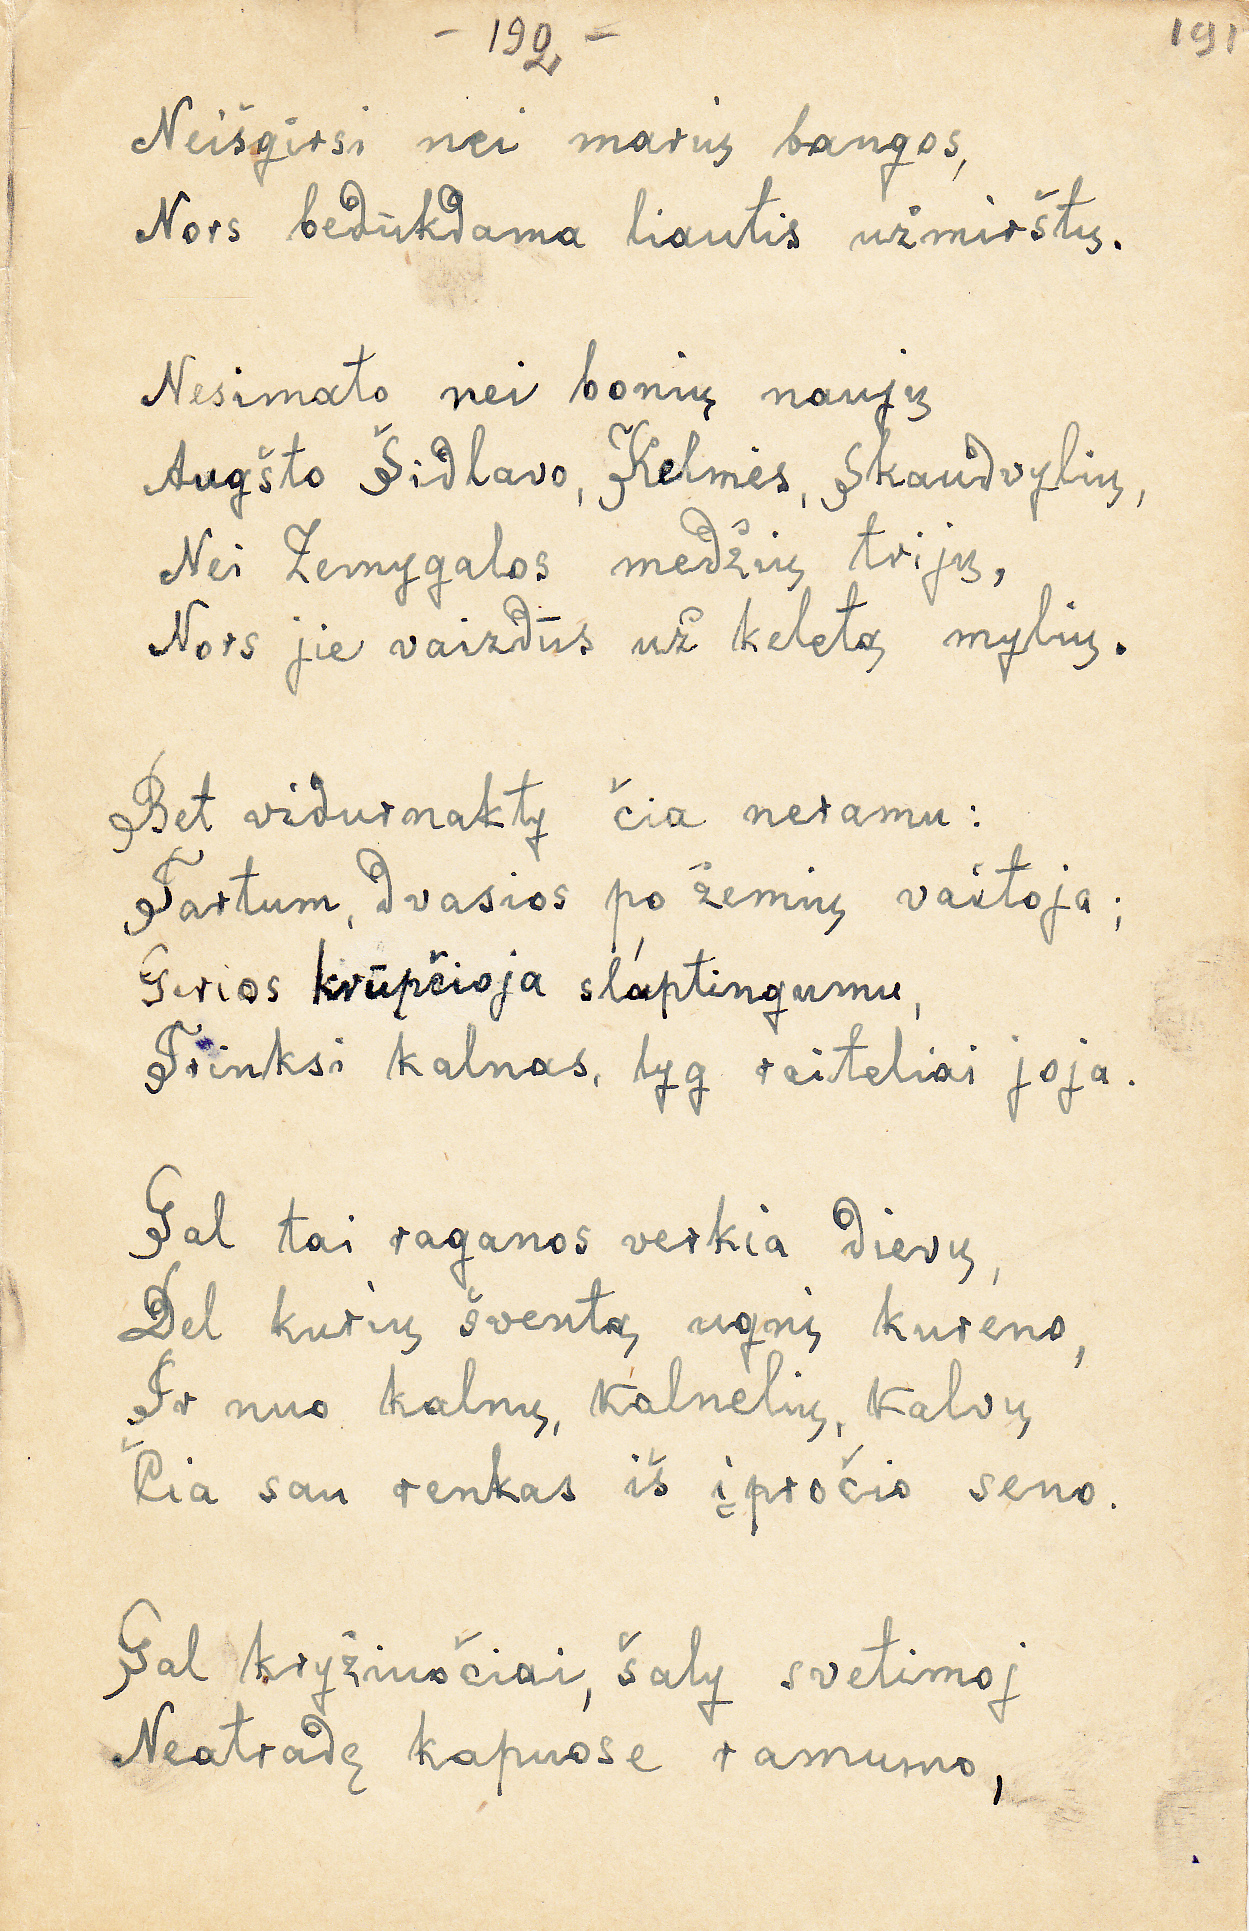 - 192 -
191
Neišgirsi nei marių bangos,
Nors bedūkdama liautis užmirštų.
Nesimato nei bonių naujų
Augšto Šidlavo, Kelmės, Skaudvylių,
Nei Žemygalos medžių trijų,
Nors jie vaizdūs už keletą mylių.
Bet vidurnakty čia neramu:
Tartum, dvasios po žemių vaštoja;
Girios krūpčioja slaptingumu,
Trinksi kalnas, lyg raiteliai joja.
Gal tai raganos verkia dievų,
Del kurių šventą ugnį kureno,
Ir nuo kalnų, kalnelių, kalvų
Čia sau renkas iš įpročio seno.
Gal kryžiuočiai, šaly svetimoj
Neatradę kapuose ramumo,